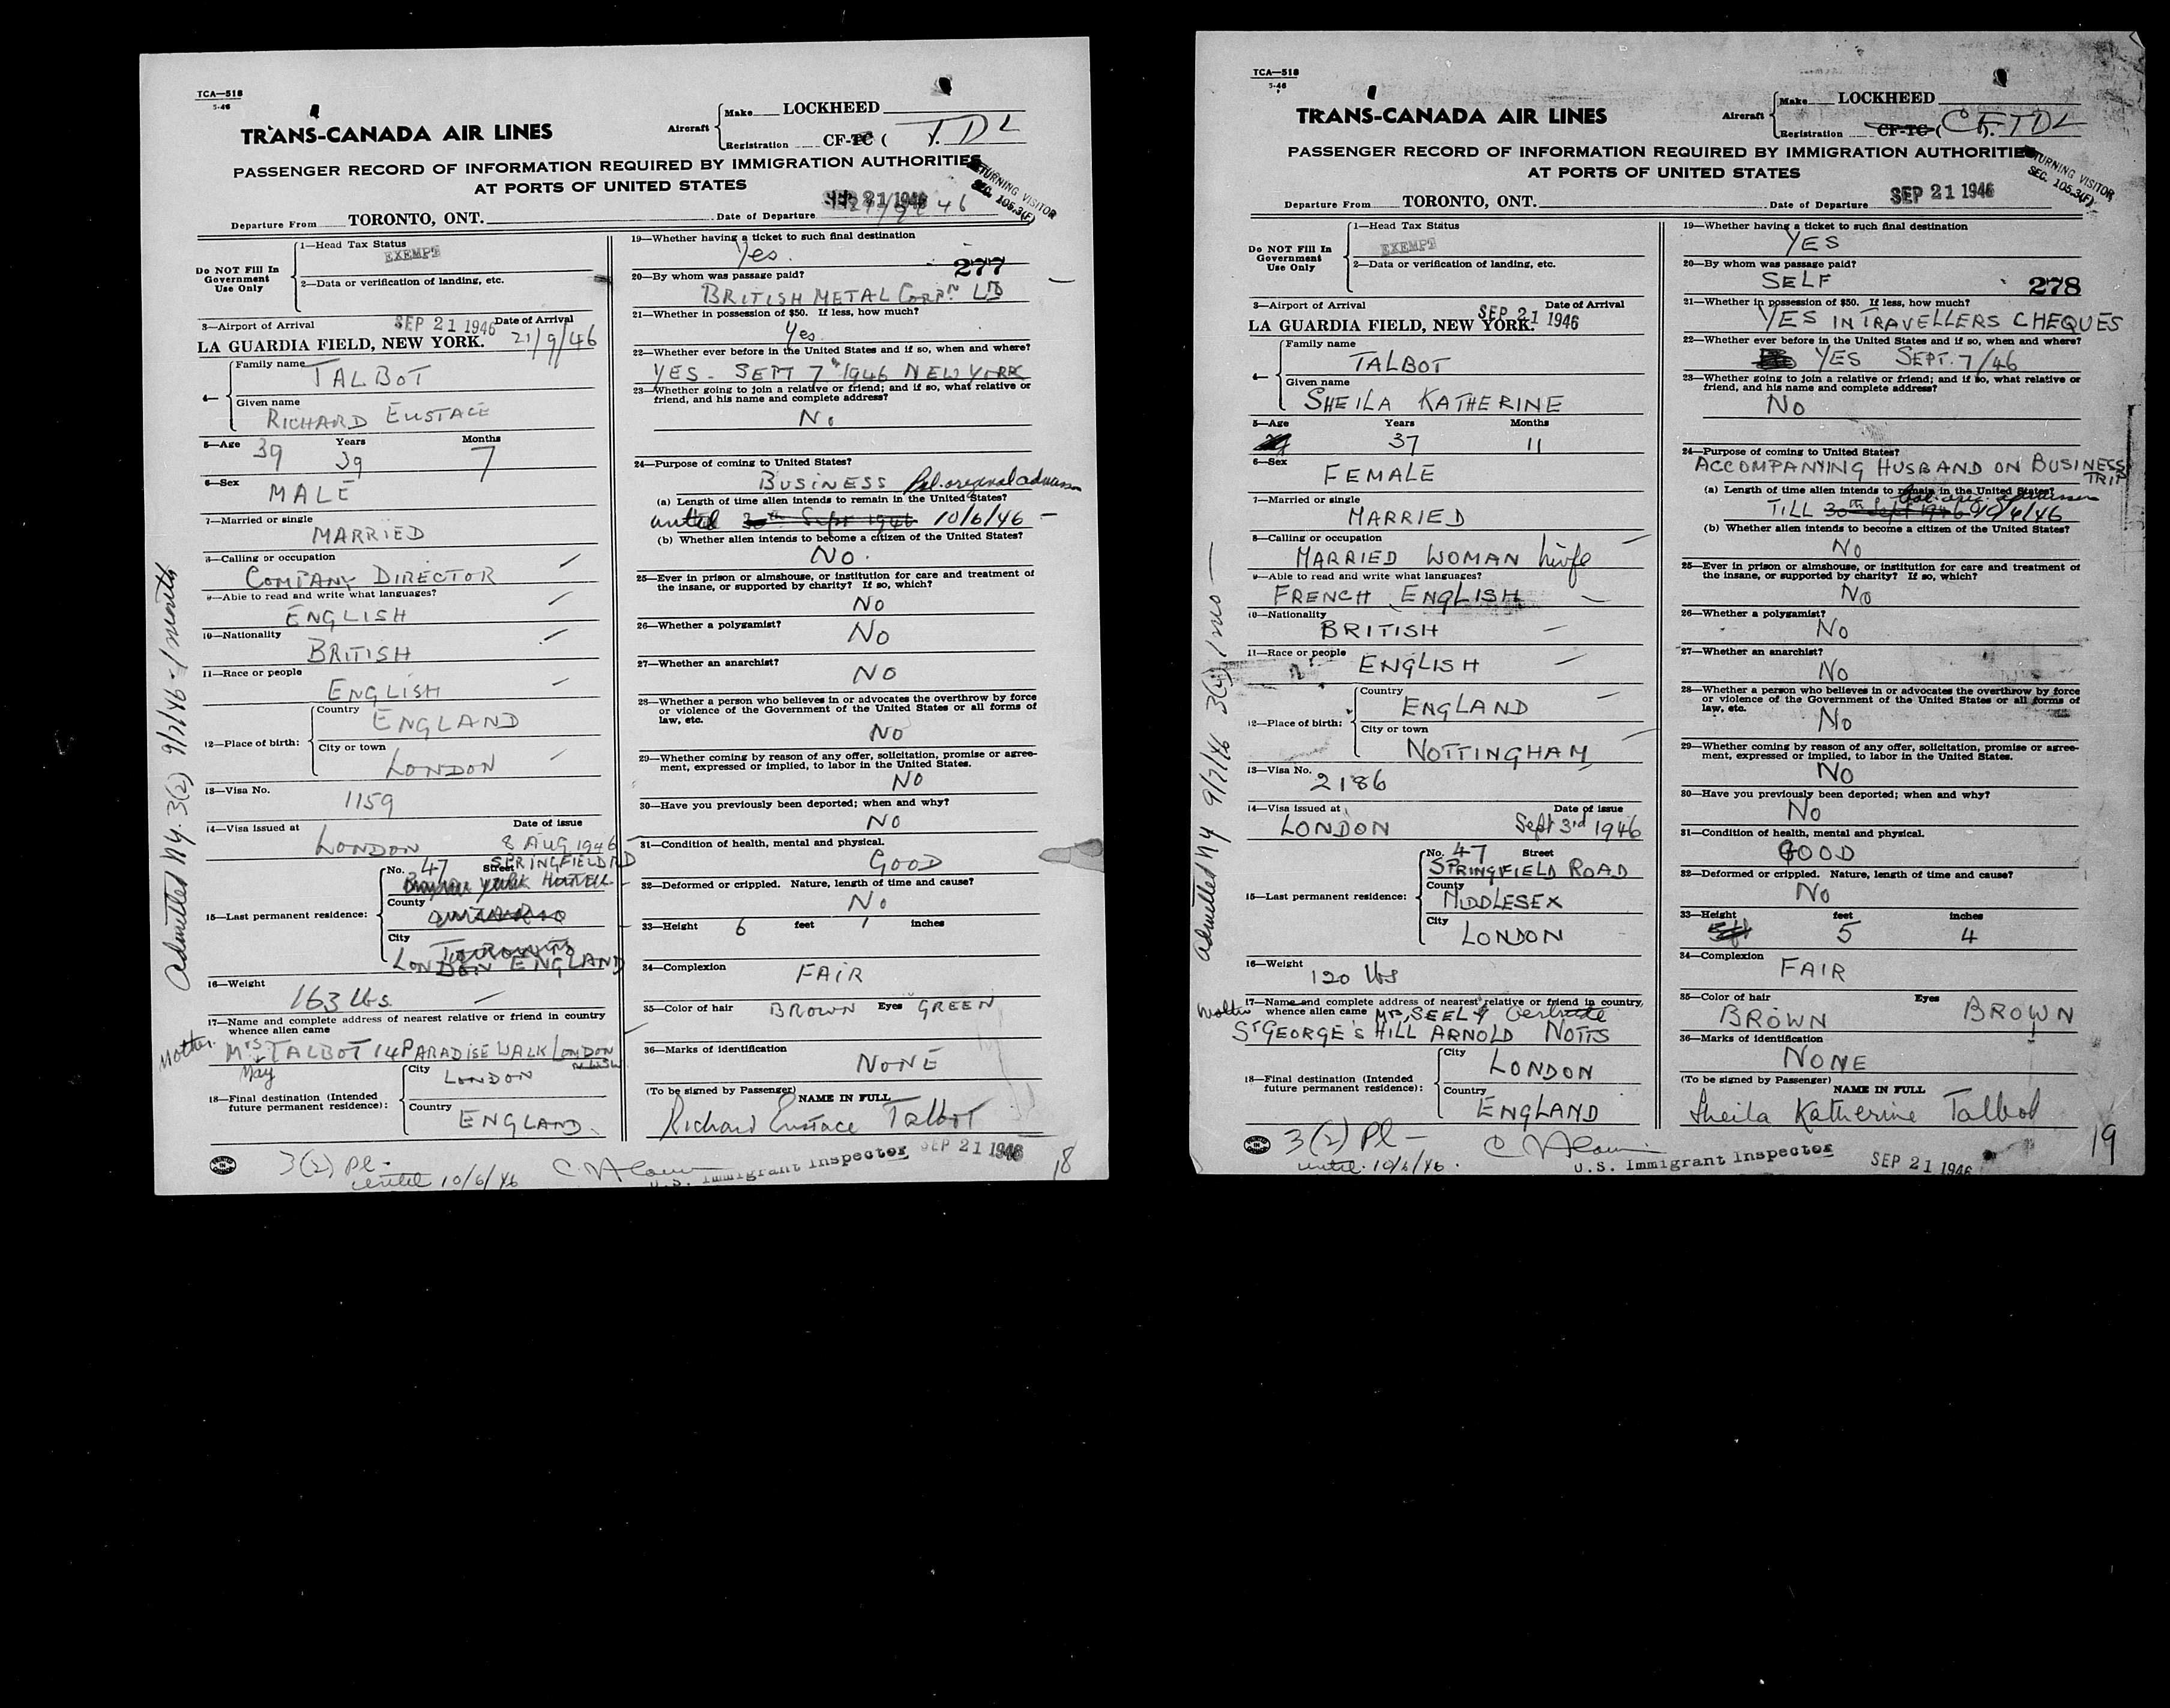 TCA—518
5-46
TRANS-CANADA AIR LINES
Aircraft
Make LOCKHEED
Registration CF-TC ( ). TDL
PASSENGER RECORD OF INFORMATION REQUIRED BY IMMIGRATION AUTHORITIES
AT PORTS OF UNITED STATES
RETURNING VISITOR
SEC. 105.3(F)
Departure From TORONTO, ONT. Date of Departure SEP 21 1946
Do NOT Fill In
Government
Use Only
1—Head Tax Status
EXEMPT
2—Data or verification of landing, etc.
3—Airport of Arrival SEP 21 1946 Date of Arrival
LA GUARDIA FIELD, NEW YORK. 21/9/46
4—
Family name
TALBOT
Given name
RICHARD EUSTACE
5—Age 39 Years 39 Months 7
6—Sex
MALE
7—Married or single
MARRIED
8—Calling or occupation
COMPANY DIRECTOR
9—Able to read and write what languages?
ENGLISH
10—Nationality
BRITISH
11—Race or people
ENGLISH
12—Place of birth:
Country
ENGLAND
City or town
LONDON
13—Visa No.
1159
14—Visa issued at Date of issue
LONDON 8 AUG 1946
15—Last permanent residence:
No. 47 Street SPRINGFIELD RD
County
City
TORONTO
LONDON ENGLAND
16—Weight
163 lbs
17—Name and complete address of nearest relative or friend in country
whence alien came
Mother. MRS TALBOT 14 PARADISE WALK LONDON
May
18—Final destination (Intended
future permanent residence):
City
LONDON
Country
ENGLAND.
3(2) Pl -
until 10/6/46
Admitted NY. 3(2) 9/7/46 - 1 month
19—Whether having a ticket to such final destination
Yes.
20—By whom was passage paid? 277
BRITISH METAL CORPN LTD
21—Whether in possession of $50. If less, how much?
Yes
22—Whether ever before in the United States and if so, when and where?
YES - SEPT 7th 1946 NEW YORK
23—Whether going to join a relative or friend; and if so, what relative or
friend, and his name and complete address?
No
24—Purpose of coming to United States?
BUSINESS Bal. original admission
(a) Length of time alien intends to remain in the United States?
until 30th Sept 1946 10/6/46 -
(b) Whether alien intends to become a citizen of the United States?
NO.
25—Ever in prison or almshouse, or institution for care and treatment of
the insane, or supported by charity? If so, which?
NO
26—Whether a polygamist?
NO
27—Whether an anarchist?
NO
28—Whether a person who believes in or advocates the overthrow by force
or violence of the Government of the United States or all forms of
law, etc.
NO
29—Whether coming by reason of any offer, solicitation, promise or agree-
ment, expressed or implied, to labor in the United States.
NO
30—Have you previously been deported; when and why?
NO
31—Condition of health, mental and physical.
GOOD
32—Deformed or crippled. Nature, length of time and cause?
No
33—Height 6 feet 1 inches
34—Complexion
FAIR
35—Color of hair BROWN Eyes GREEN
36—Marks of identification
NONE
(To be signed by Passenger)
NAME IN FULL
Richard Eustace Talbot
U.S. Immigrant Inspector SEP 21 1946
18
TCA—518
5-46
TRANS-CANADA AIR LINES
Aircraft
Make LOCKHEED
Registration CF-TC ( ). CF TDL
PASSENGER RECORD OF INFORMATION REQUIRED BY IMMIGRATION AUTHORITIES
AT PORTS OF UNITED STATES
RETURNING VISITOR
SEC. 105.3(F)
Departure From TORONTO, ONT. Date of Departure SEP 21 1946
Do NOT Fill In
Government
Use Only
1—Head Tax Status
EXEMPT
2—Data or verification of landing, etc.
3—Airport of Arrival Date of Arrival
LA GUARDIA FIELD, NEW YORK. SEP 21 1946
4—
Family name
TALBOT
Given name
SHEILA KATHERINE
5—Age Years 37 Months 11
6—Sex
FEMALE
7—Married or single
MARRIED
8—Calling or occupation
MARRIED WOMAN hwife
9—Able to read and write what languages?
FRENCH ENGLISH
10—Nationality
BRITISH
11—Race or people
ENGLISH
12—Place of birth:
Country
ENGLAND
City or town
NOTTINGHAM
13—Visa No.
2186
14—Visa issued at Date of issue
LONDON Sept 3rd 1946
15—Last permanent residence:
No. 47 Street
SPRINGFIELD ROAD
County
MIDDLESEX
City
LONDON
16—Weight
120 lbs
17—Name and complete address of nearest relative or friend in country,
whence alien came Mrs. SEELY Gertrude
Mother
ST GEORGE'S HILL ARNOLD NOTTS
18—Final destination (Intended
future permanent residence):
City
LONDON
Country
ENGLAND
3(2) Pl -
until 10/6/46.
admitted NY 9/7/46 3(2) 1 mo -
19—Whether having a ticket to such final destination
YES
20—By whom was passage paid?
SELF 278
21—Whether in possession of $50. If less, how much?
YES IN TRAVELLERS CHEQUES
22—Whether ever before in the United States and if so, when and where?
YES SEPT. 7/46
23—Whether going to join a relative or friend; and if so, what relative or
friend, and his name and complete address?
NO
24—Purpose of coming to United States?
ACCOMPANYING HUSBAND ON BUSINESS
TRIP
(a) Length of time alien intends to remain in the United States?
TILL 30th Sept 1946 10/6/46
(b) Whether alien intends to become a citizen of the United States?
NO
25—Ever in prison or almshouse, or institution for care and treatment of
the insane, or supported by charity? If so, which?
No
26—Whether a polygamist?
No
27—Whether an anarchist?
No
28—Whether a person who believes in or advocates the overthrow by force
or violence of the Government of the United States or all forms of
law, etc.
No
29—Whether coming by reason of any offer, solicitation, promise or agree-
ment, expressed or implied, to labor in the United States.
NO
30—Have you previously been deported; when and why?
No
31—Condition of health, mental and physical.
GOOD
32—Deformed or crippled. Nature, length of time and cause?
No
33—Height feet 5 inches 4
34—Complexion
FAIR
35—Color of hair Eyes
BROWN BROWN
36—Marks of identification
NONE
(To be signed by Passenger)
NAME IN FULL
Sheila Katherine Talbot
U.S. Immigrant Inspector SEP 21 1946
19